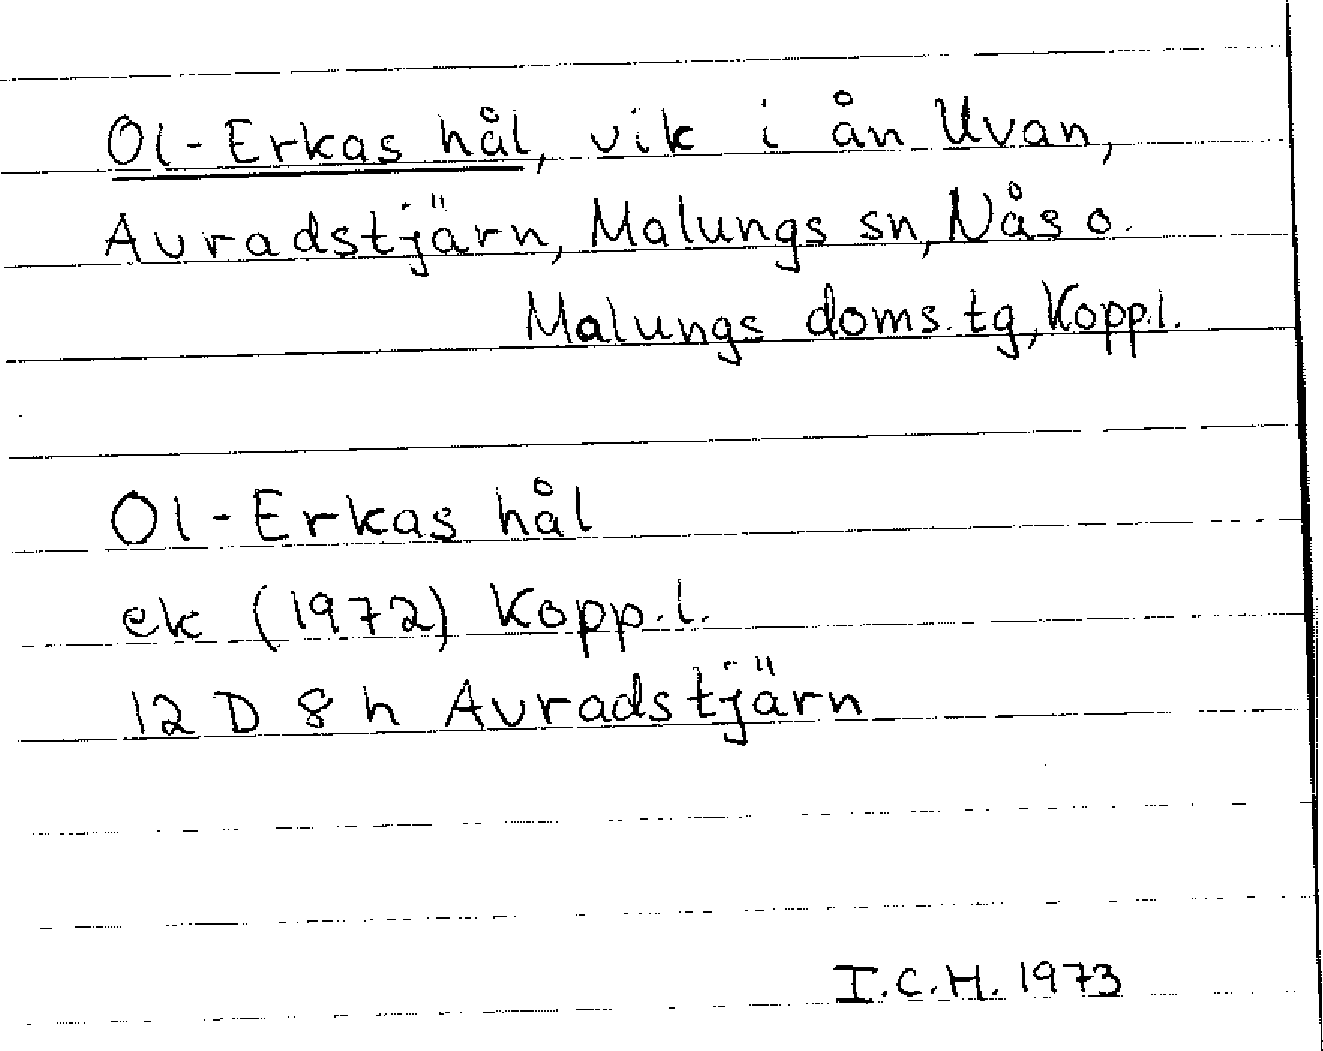 Ol-Erkas hål, vik i ån Uvan,
Avradstjärn, Malungs sn, Nås o.
Malungs doms.tg, Kopp.l.
Ol-Erkas hål
ek (1972) Kopp.l.
12 D 8 h Avradstjärn
I.C.H. 1973